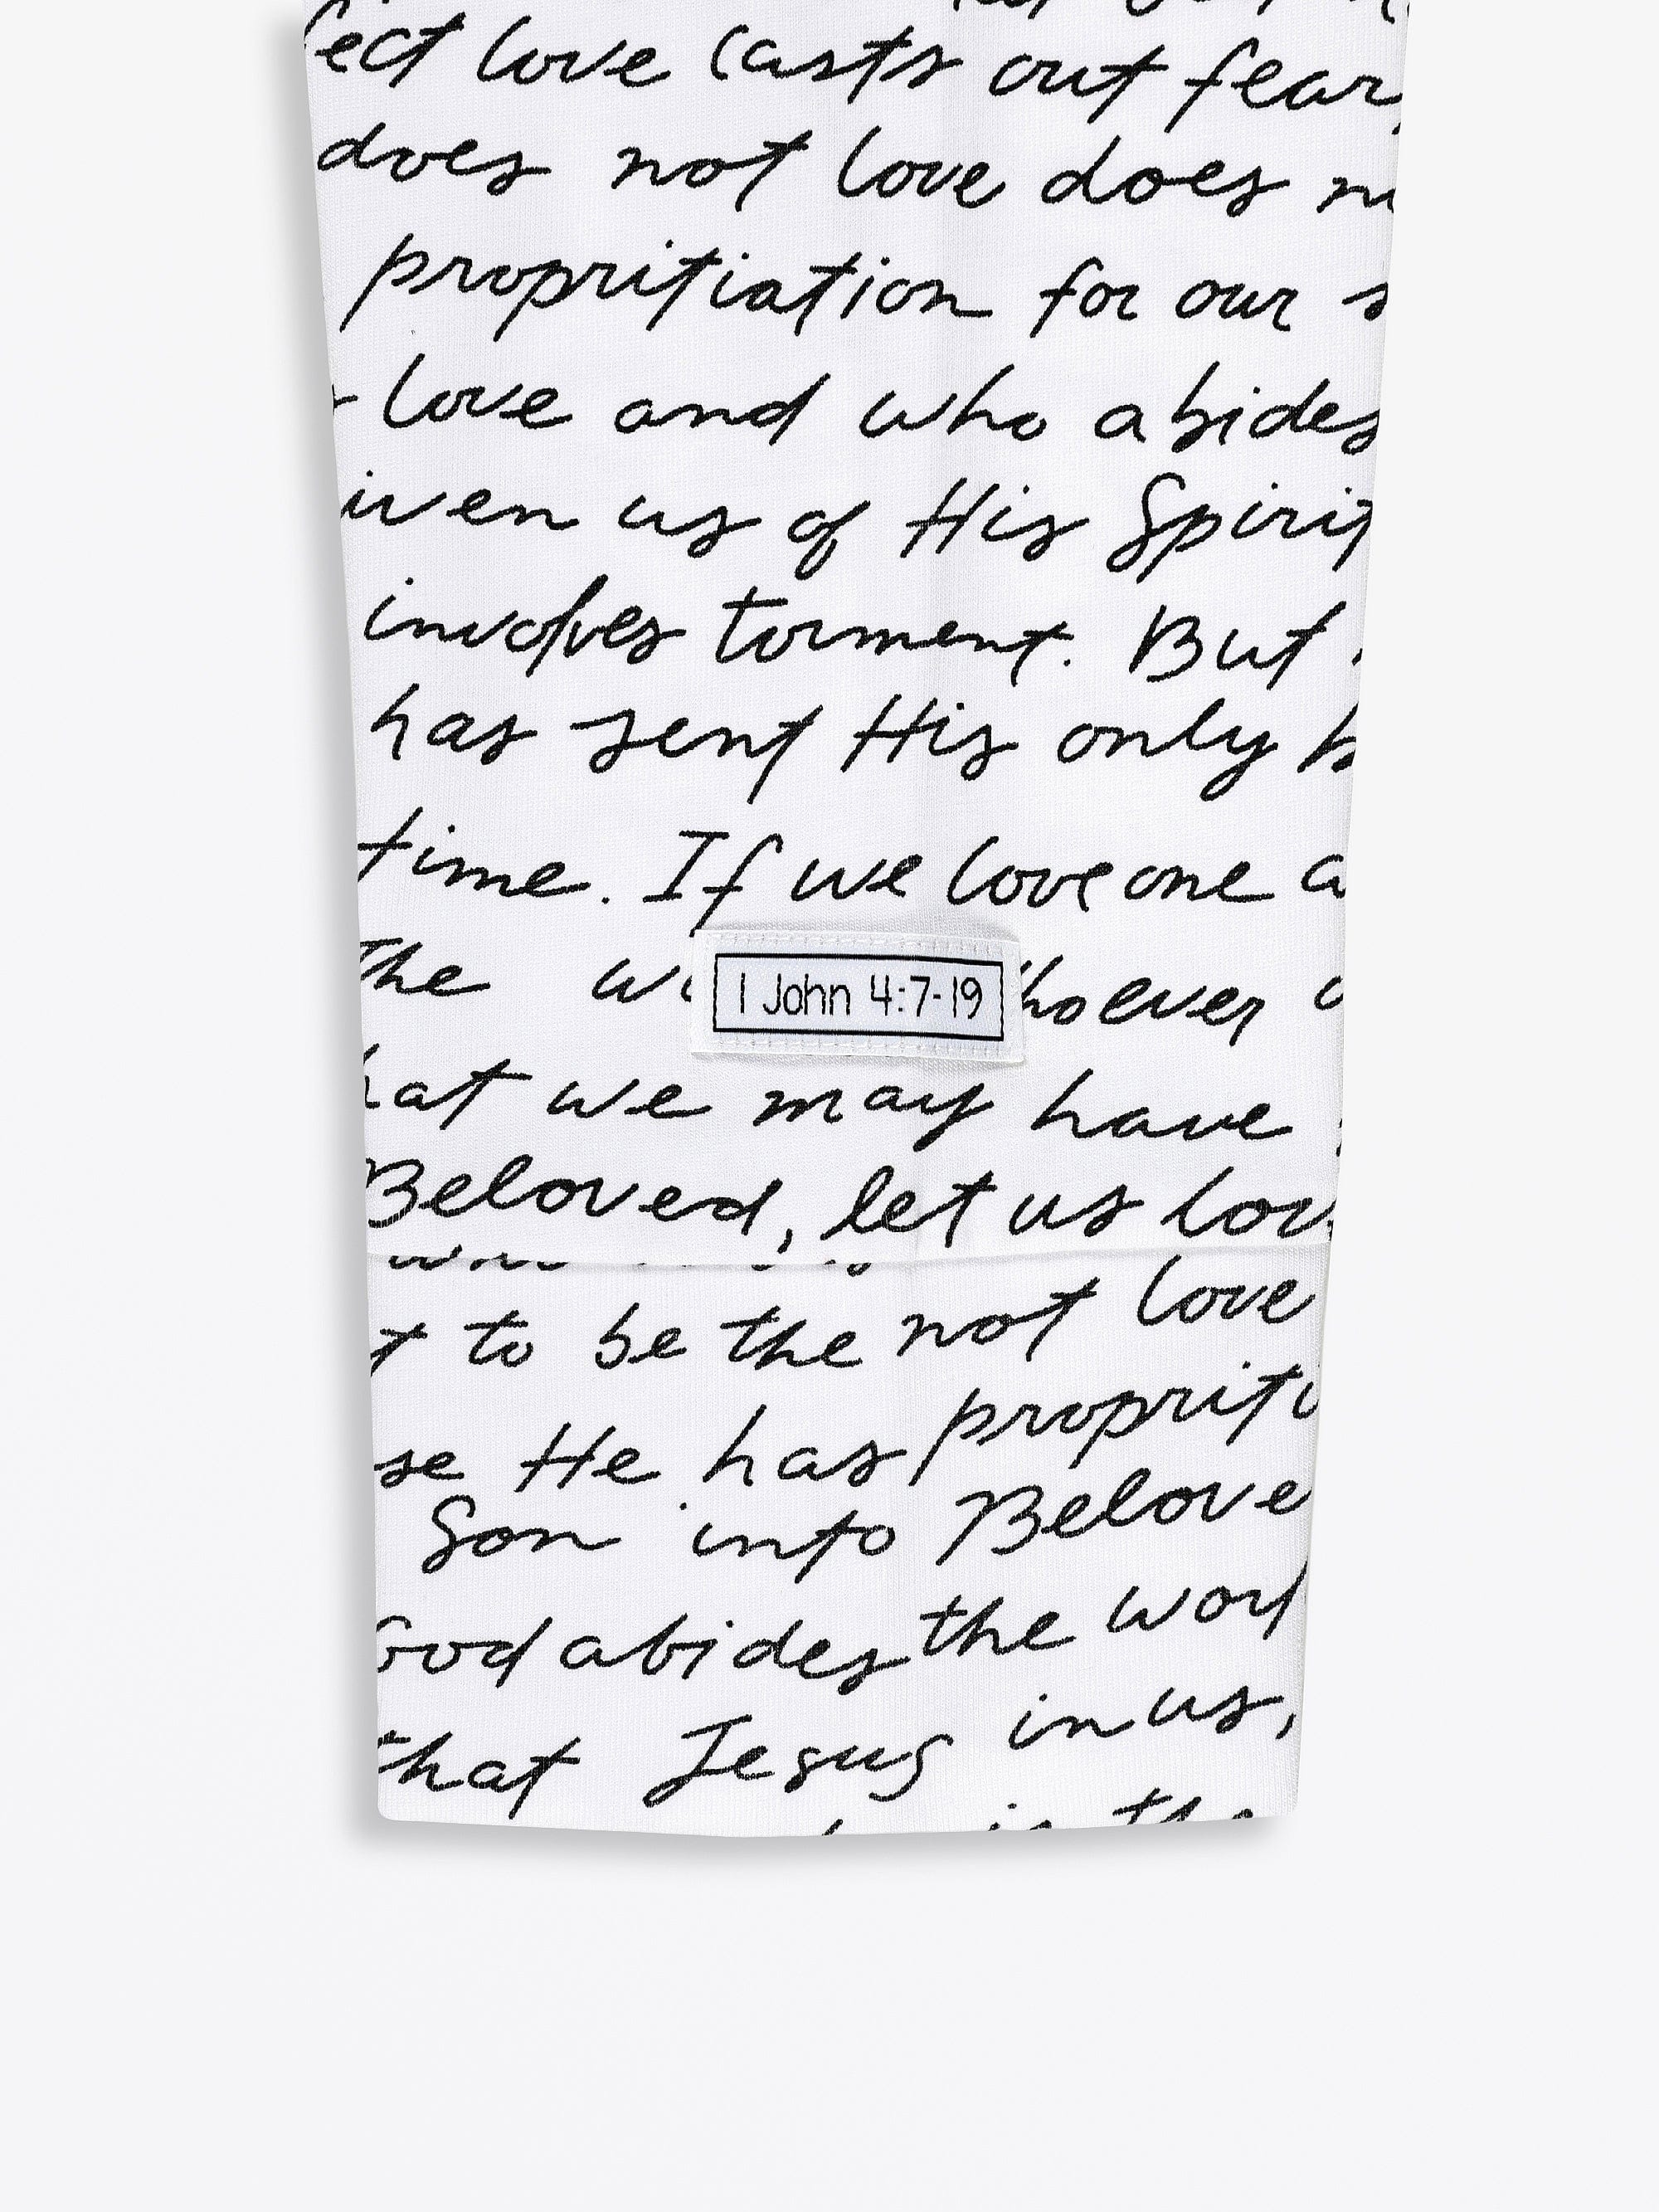 fect love casts out fear,
does not love does
propritiation for our s
love and who abides
iven us of His Spirit
involves torment. But
has sent His only b
time. If we love one a
the w hoever
1 John 4:7-19
hat we may have
Beloved, let us lov
t to be the not love
se He has propriti
Son into Belove
God abides the worl
that Jesus in us,
is the